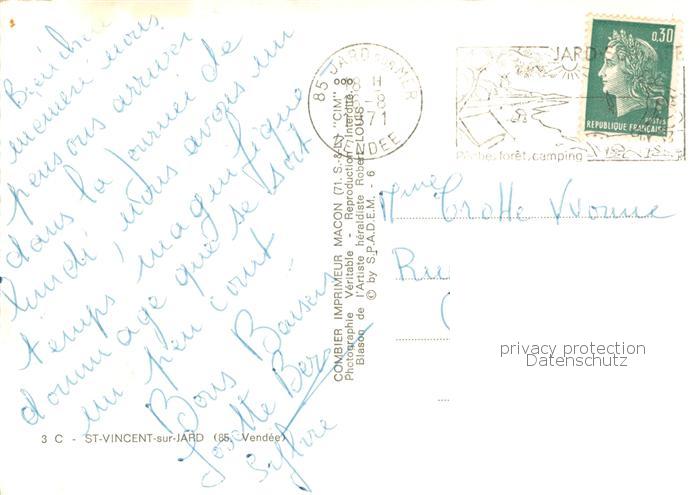 Bien chère
mémère nous
pensons arriver
dans la journée de
lundi, nous avons un
temps magnifique
dommage que se soit
un peu court
Bons Baisers
Josette Ber
Sylvie
3 C - ST-VINCENT-sur-JARD (85, Vendée)
COMBIER IMPRIMEUR MACON (71 S.-&-L.) "CIM"
Photographie Véritable - Reproduction Interdite
Blason de l'Artiste héraldiste Robert LOUIS
© by S.P.A.D.E.M. - 6
85 JARD-sur-MER
H
-8
1971
VENDEE
JARD
Pêche, forêt, camping
0,30
POSTES
REPUBLIQUE FRANÇAISE
Mme Trotte Yvonne
Rue
privacy protection
Datenschutz